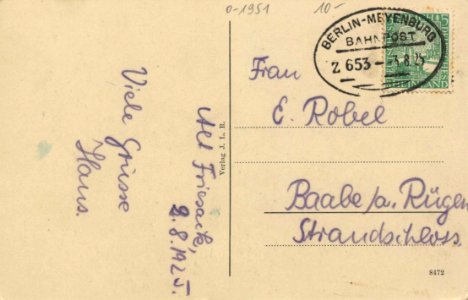 0-1951
10-
BERLIN-MEYENBURG
BAHNPOST
Z 653
8.25
5
Frau
E. Robel
Baabe/a. Rügen
Strandschloss.
Alt Friesack,
2.8.1925.
Viele Grüsse
Hans.
Verlag J. L. R.
8472